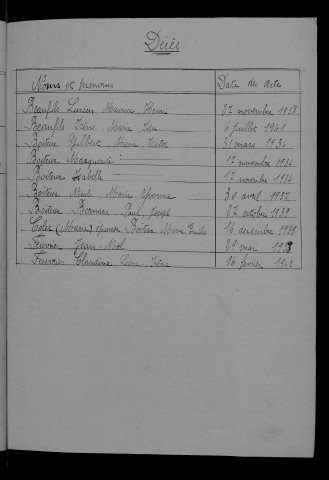 Décès
Noms et prénoms Date des actes
Beaufils Lucien Maurice Henri 27 novembre 1938
Beaufils Irène Marie 6 juillet 1941
Boiteux Gilbert Marie Victor 31 mars 1934
Boiteux Marguerite 12 novembre 1934
Boiteux Isabelle 12 novembre 1934
Boiteux Nicole Marie Yvonne 30 avril 1937
Boiteux Bernard Paul Joseph 27 octobre 1939
(Marie) épouse Boiteux Marie Emile 16 décembre 1939
Feuvrier Jean-Noël 29 mai
Feuvrier Claudine Irène 16 février 1942